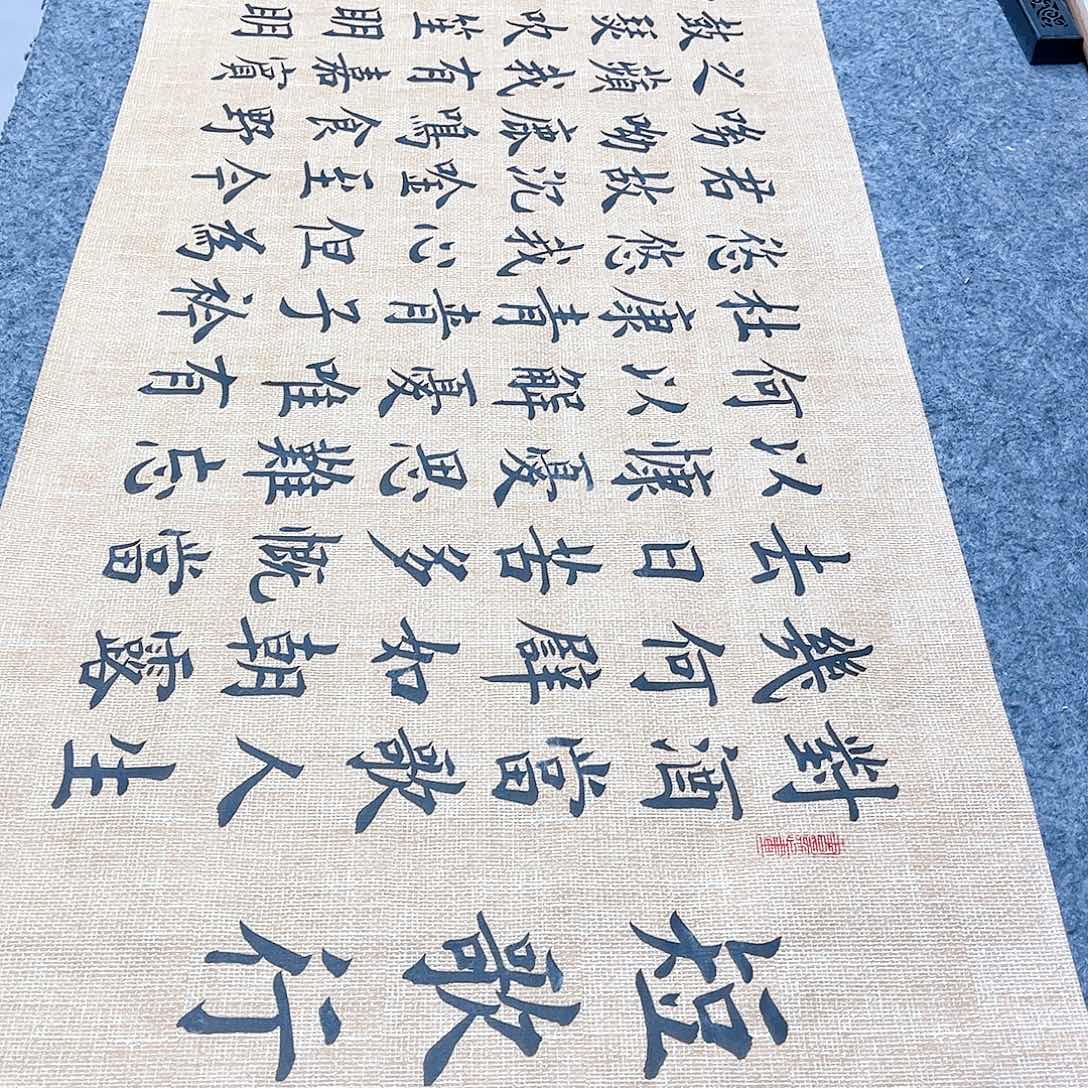 短歌行
對酒當歌人生
幾何譬如朝露
去日苦多慨當
以慷憂思難忘
何以解憂唯有
杜康青青子衿
悠悠我心但為
君故沉吟至今
呦呦鹿鳴食野
之蘋我有嘉賓
鼓瑟吹笙明明